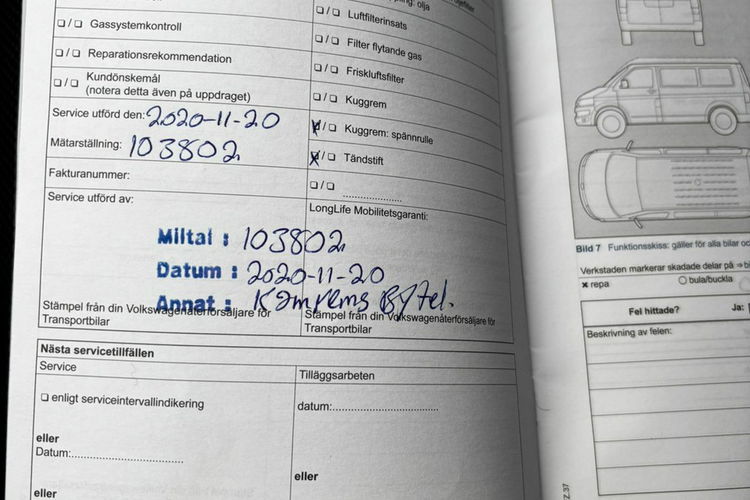 ❏/❏ Gassystemkontroll
❏/❏ Reparationsrekommendation
❏/❏ Kundönskemål
(notera detta även på uppdraget)
Service utförd den: 2020-11-20
Mätarställning: 103802
Fakturanummer:
Service utförd av:
❏/❏ Luftfilterinsats
❏/❏ Filter flytande gas
❏/❏ Friskluftsfilter
❏/❏ Kuggrem
❏/❏ Kuggrem: spännrulle
❏/❏ Tändstift
❏/❏ ....................
LongLife Mobilitetsgaranti:
Miltal : 103802
Datum : 2020-11-20
Annat : Kamrems Bytet.
Stämpel från din Volkswagenåterförsäljare för
Transportbilar
Stämpel från din Volkswagenåterförsäljare för
Transportbilar
Nästa servicetillfällen
Service
❏ enligt serviceintervallindikering
eller
Datum:..............................
eller
Tilläggsarbeten
datum:..............................
eller
Bild 7 Funktionsskiss: gäller för alla bilar
Verkstaden markerar skadade delar på
✖ repa
○ bula/buckla
Fel hittade?
Ja:
Beskrivning av felen: